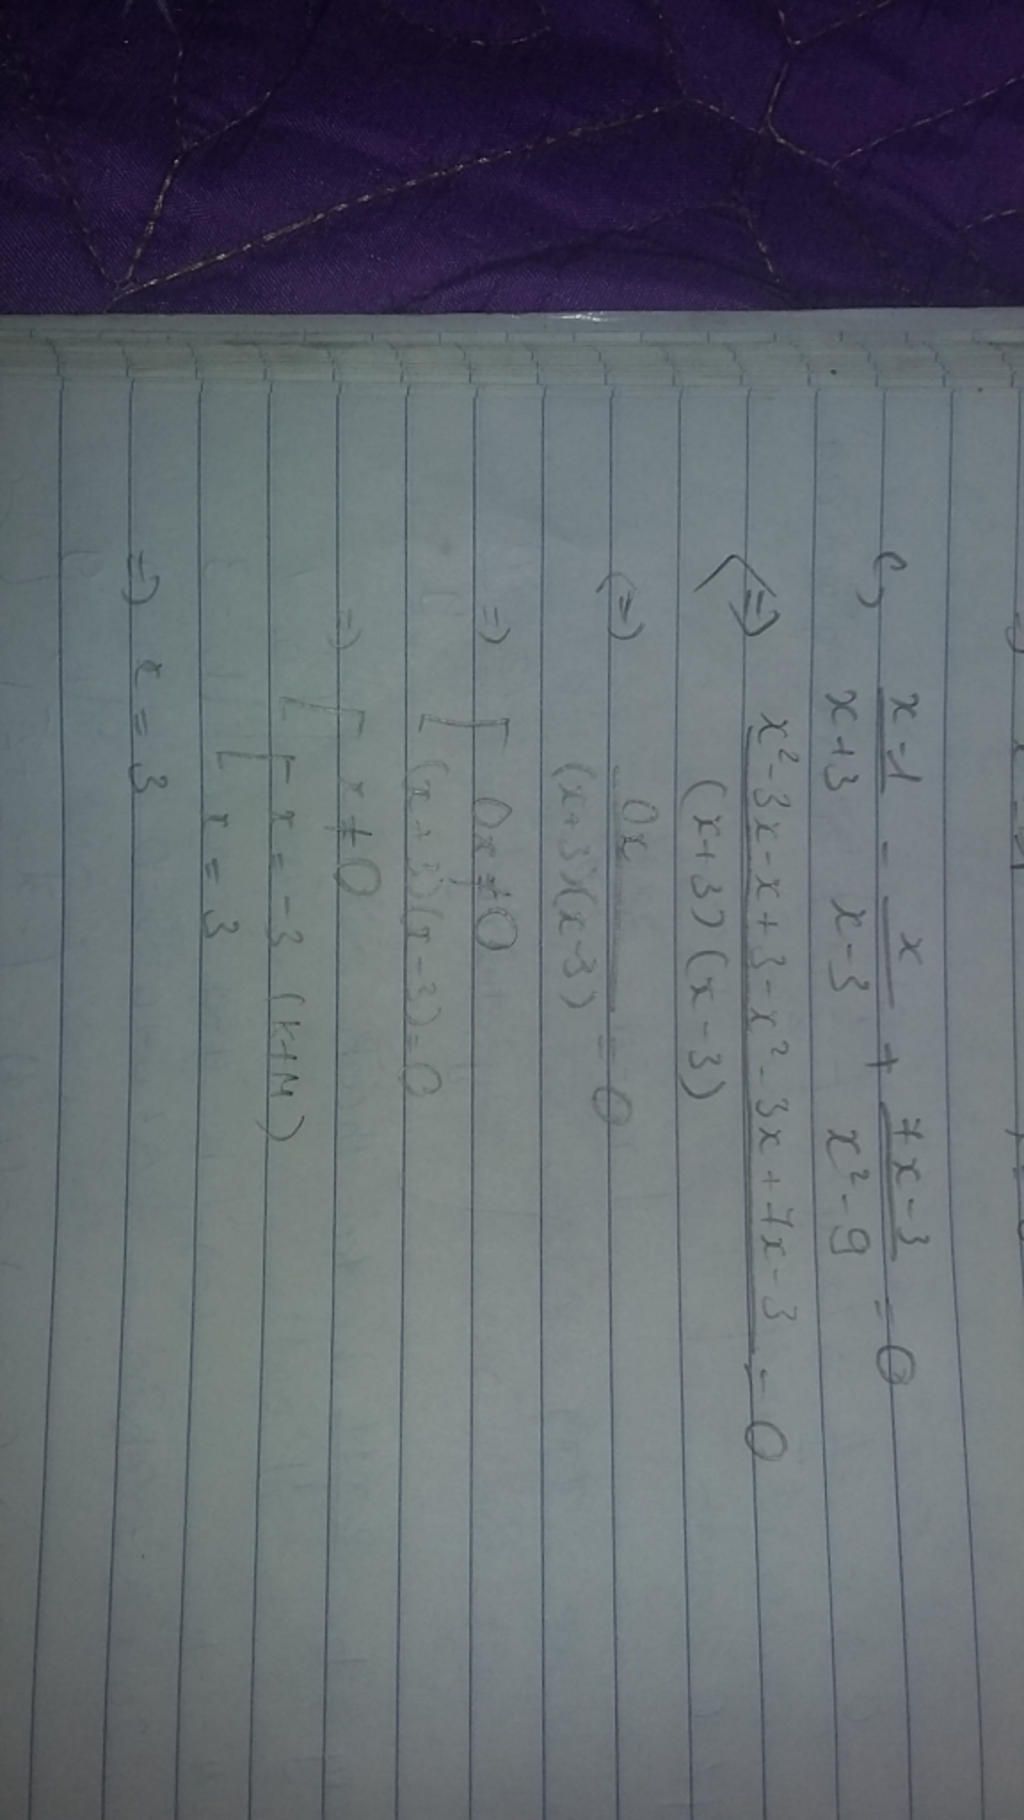 c, x-1/x+3 - x/x-3 + 7x-3/x²-9 = 0
<=> x²-3x-x+3-x²-3x+7x-3/(x+3)(x-3) = 0
(=) 0x/(x+3)(x-3) = 0
=) [ 0x≠0
(x+3)(x-3)=0
=) [ x≠0
[ x=-3 (K+M)
x=3
=) x=3